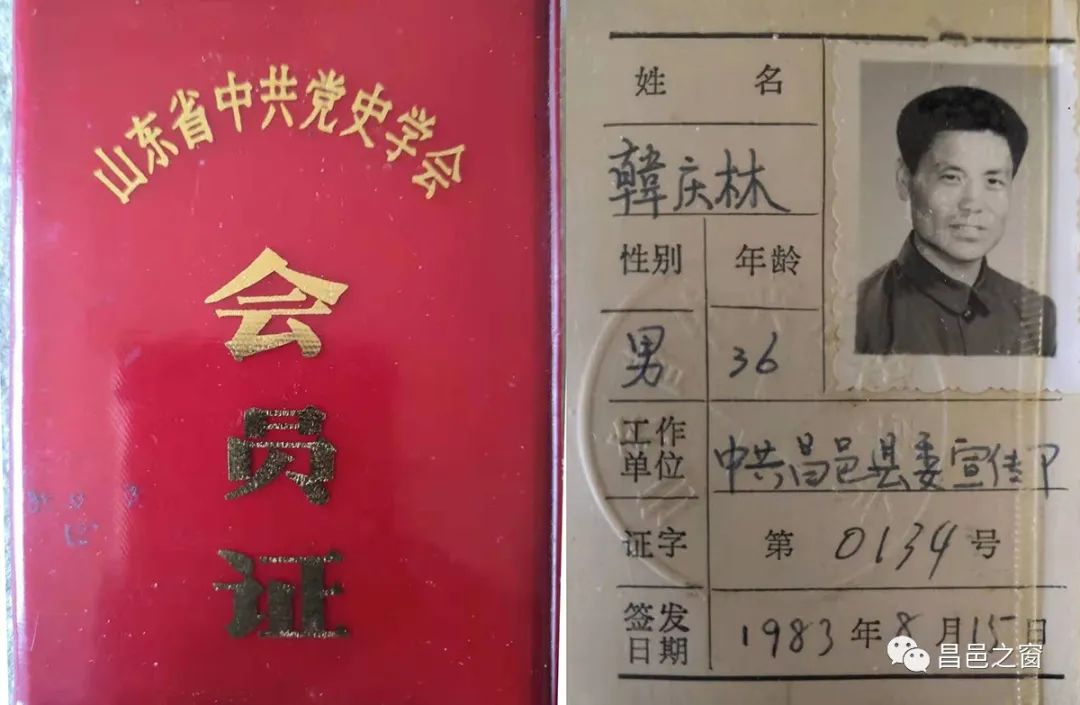 山东省中共党史学会
会
员
证
姓 名
韓庆林
性别 年龄
男 36
工作
单位
中共昌邑县委宣传卩
证字 第 0134 号
签发
日期
1983 年 8 月 15 日
昌邑之窗